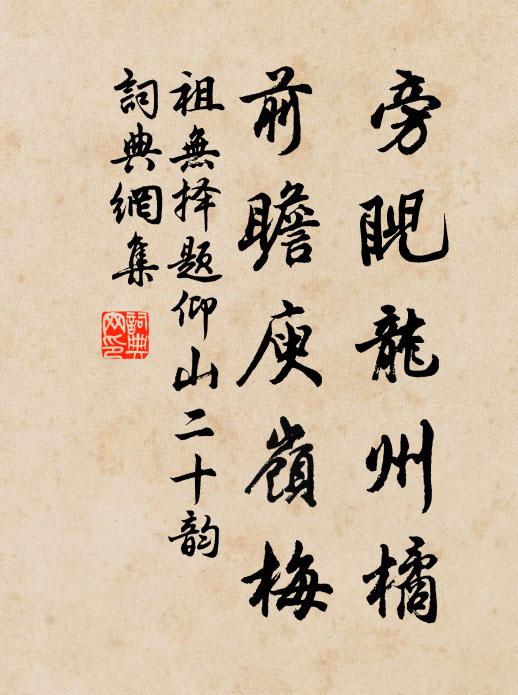 旁睨龍州橘
前瞻庾嶺梅
祖無择題仰山二十韵
詞典網集
詞典网印